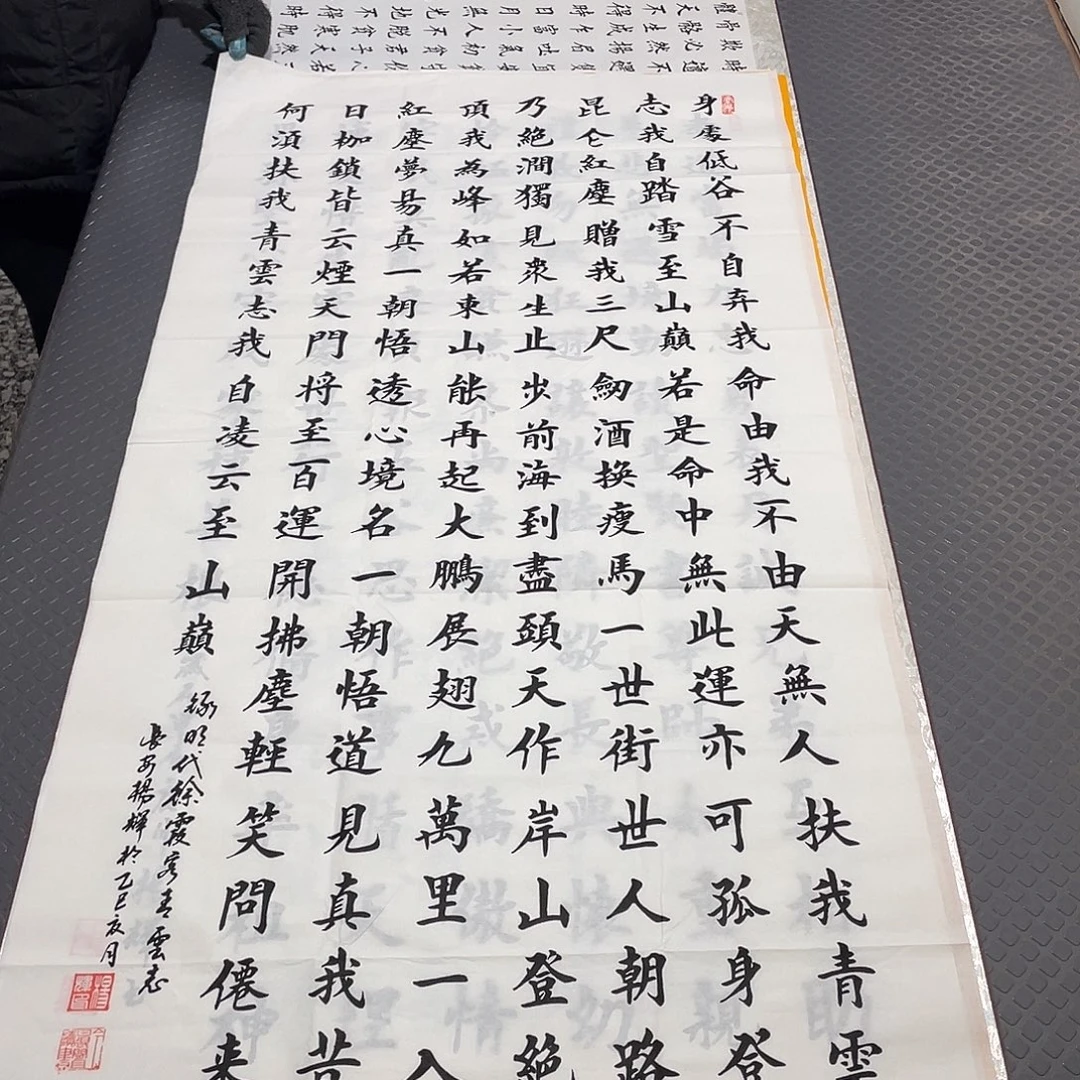 身處低谷不自弃我命由我不由天無人扶我青雲
志我自踏雪至山巔若是命中無此運亦可孤身登
昆仑紅塵贈我三尺劒酒換瘦馬一世街世人朝路
乃絕澗獨見衆生止步前海到盡頭天作岸山登絕
頂我為峰如若東山能再起大鵬展翅九萬里一入
紅塵夢易真一朝悟透心境名一朝悟道見真我苦
日枷鎖皆云煙天門将至百運開拂塵輕笑問僊来
何湏扶我青雲志我自凌云至山巔
録明代徐霞客青雲志
長安楊輝於乙巳亥月